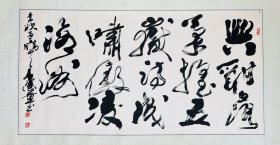 興酣落
筆搖五
嶽詩成
嘯傲凌
滄洲